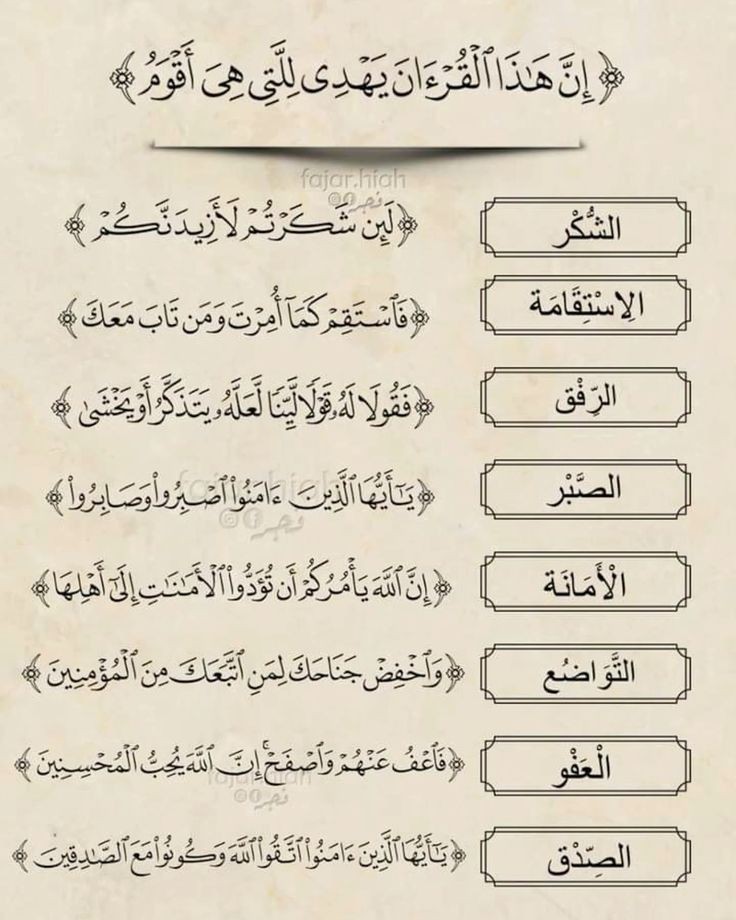 ﴿ إِنَّ هَٰذَا ٱلْقُرْءَانَ يَهْدِى لِلَّتِى هِىَ أَقْوَمُ ﴾
fajar.hiah
فجر
الشُّكْر
﴿ لَئِن شَكَرْتُمْ لَأَزِيدَنَّكُمْ ﴾
الِاسْتِقَامَة
﴿ فَٱسْتَقِمْ كَمَآ أُمِرْتَ وَمَن تَابَ مَعَكَ ﴾
الرِّفْق
﴿ فَقُولَا لَهُۥ قَوْلًا لَّيِّنًا لَّعَلَّهُۥ يَتَذَكَّرُ أَوْ يَخْشَىٰ ﴾
الصَّبْر
﴿ يَٰٓأَيُّهَا ٱلَّذِينَ ءَامَنُوا۟ ٱصْبِرُوا۟ وَصَابِرُوا۟ ﴾
fajar.hiah
فجر
الْأَمَانَة
﴿ إِنَّ ٱللَّهَ يَأْمُرُكُمْ أَن تُؤَدُّوا۟ ٱلْأَمَٰنَٰتِ إِلَىٰٓ أَهْلِهَا ﴾
التَّوَاضُع
﴿ وَٱخْفِضْ جَنَاحَكَ لِمَنِ ٱتَّبَعَكَ مِنَ ٱلْمُؤْمِنِينَ ﴾
الْعَفْو
﴿ فَٱعْفُ عَنْهُمْ وَٱصْفَحْ ۚ إِنَّ ٱللَّهَ يُحِبُّ ٱلْمُحْسِنِينَ ﴾
fajar.hiah
فجر
الصِّدْق
﴿ يَٰٓأَيُّهَا ٱلَّذِينَ ءَامَنُوا۟ ٱتَّقُوا۟ ٱللَّهَ وَكُونُوا۟ مَعَ ٱلصَّٰدِقِينَ ﴾